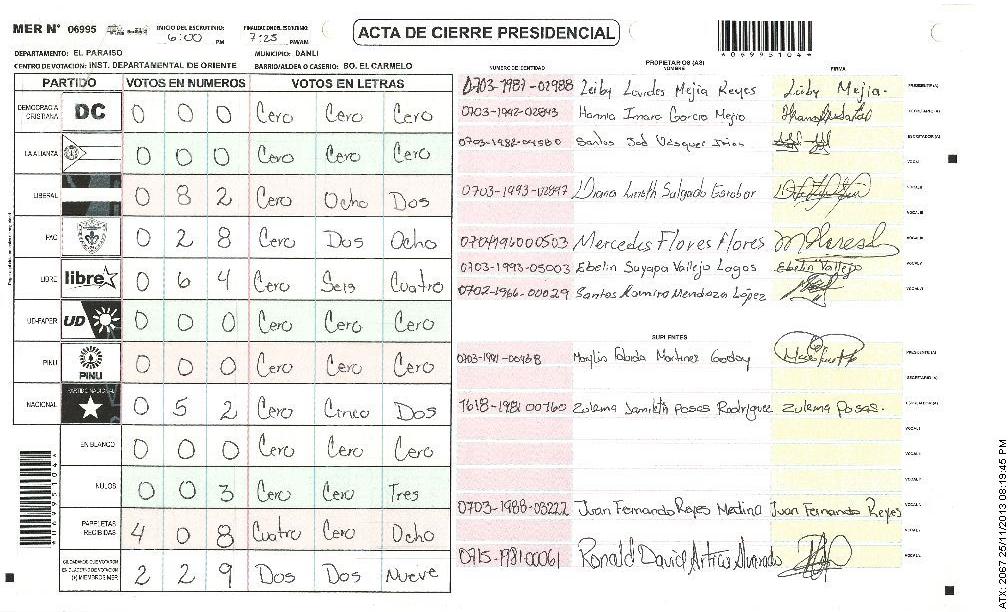 MER Nº 06995 INICIO DEL ESCRUTINIO: 6:00 PM FINALIZACION DEL ESCRUTINIO: 7:25 PM/AM
ACTA DE CIERRE PRESIDENCIAL
*06995104*
DEPARTAMENTO: EL PARAISO MUNICIPIO: DANLI
CENTRO DE VOTACION: INST. DEPARTAMENTAL DE ORIENTE BARRIO/ALDEA O CASERIO: BO. EL CARMELO
PARTIDO VOTOS EN NUMEROS VOTOS EN LETRAS
DEMOCRACIA CRISTIANA DC 0 0 0 Cero Cero Cero
LA ALIANZA 0 0 0 Cero Cero Cero
LIBERAL 0 8 2 Cero Ocho Dos
PAC 0 2 8 Cero Dos Ocho
LIBRE libre 0 6 4 Cero Seis Cuatro
UD-FAPER UD 0 0 0 Cero Cero Cero
PINU PINU 0 0 0 Cero Cero Cero
NACIONAL PARTIDO NACIONAL 0 5 2 Cero Cinco Dos
EN BLANCO 0 0 0 Cero Cero Cero
NULOS 0 0 3 Cero Cero Tres
PAPELETAS RECIBIDAS 4 0 8 Cuatro Cero Ocho
CIUDADANOS QUE VOTARON EN CUADERNO DE VOTACION (+) MIEMBROS MER 2 2 9 Dos Dos Nueve
*06995104*
PROPIETARIOS (AS)
NUMERO DE IDENTIDAD NOMBRE FIRMA
0703-1987-02988 Leiby Lourdes Mejia Reyes Leiby Mejia. PRESIDENTE (A)
0703-1992-02843 Hannia Imara Garcia Mejia SECRETARIO (A)
0703-1982-04580 Santos Vasquez ESCRUTADOR (A)
VOCAL I
0703-1993-02897 Diana Lineth Salgado Escobar VOCAL II
VOCAL III
0704196000503 Mercedes Flores Flores M Flores VOCAL IV
0703-1993-05003 Ebelin Suyapa Vallejo Lagos Ebelin Vallejo VOCAL V
0702-1966-00029 Santos Ramiro Mendoza López VOCAL VI
SUPLENTES
0703-1991-00468 Martinez Godoy PRESIDENTE (A)
SECRETARIO (A)
1618-1981 00760 Zulema Jamileth Posas Rodriguez Zulema Posas. ESCRUTADOR (A)
VOCAL I
VOCAL II
VOCAL III
0703-1988-03222 Juan Fernando Reyes Medina Juan Fernando Reyes
0715-1981-00061 Ronald David Artica Alvarado
ATX: 2067 25/11/2013 08:19:45 PM